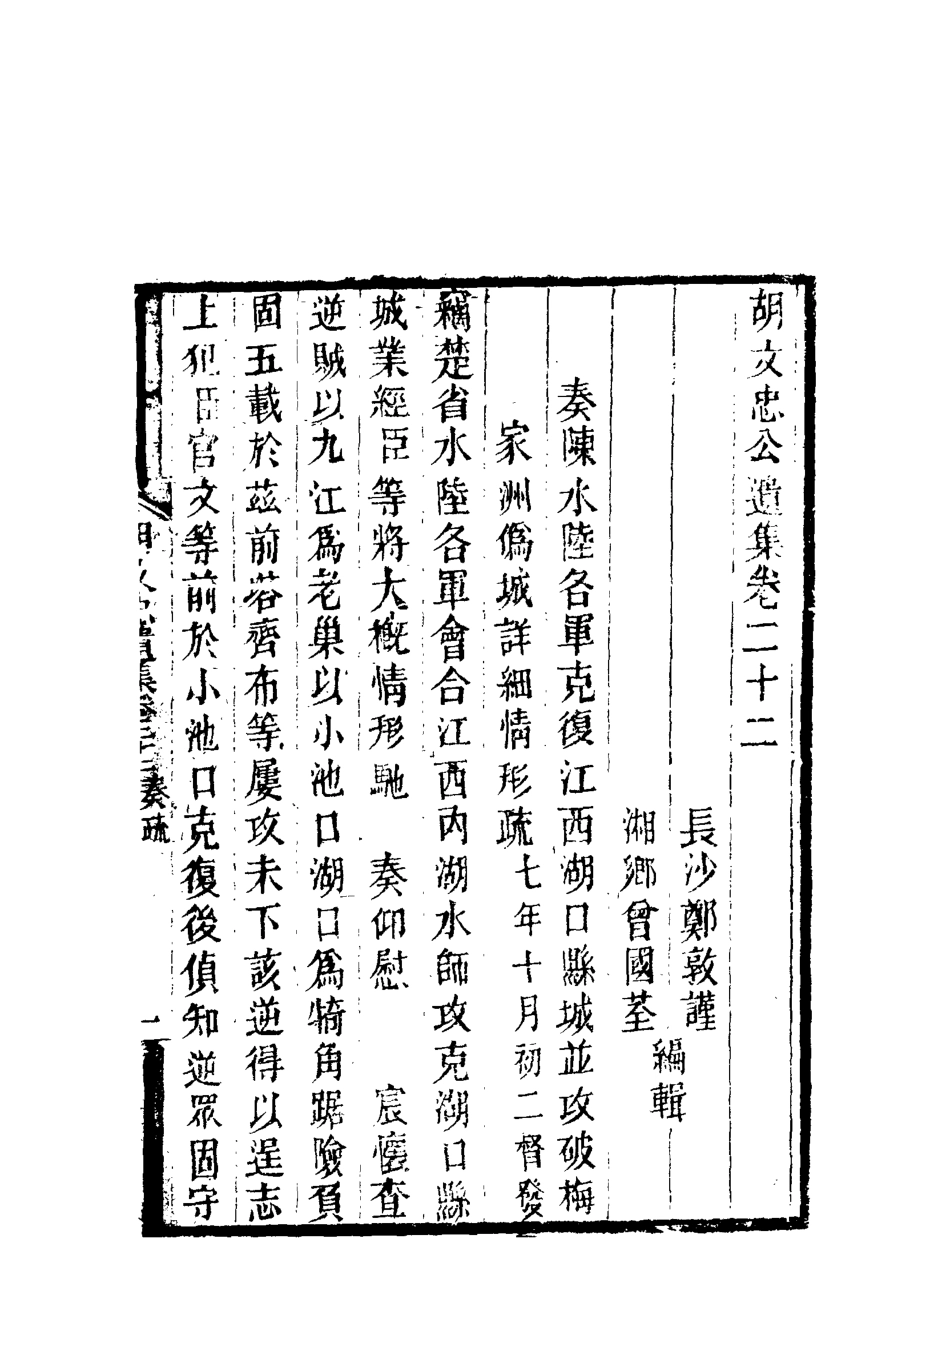 胡文忠公遺集卷二十二
長沙鄭敦謹
湘鄉曾國荃
編輯
奏陳水陸各軍克復江西湖口縣城並攻破梅
家洲僞城詳細情形疏七年十月初二督發
竊楚省水陸各軍會合江西內湖水師攻克湖口縣
城業經臣等將大槪情形馳 奏仰慰 宸懷查
逆賊以九江爲老巢以小池口湖口爲犄角踞險負
固五載於茲前塔齊布等屢攻未下該逆得以逞志
上犯臣官文等前於小池口克復後偵知逆眾固守
胡文忠公遺集卷二十二奏疏 一